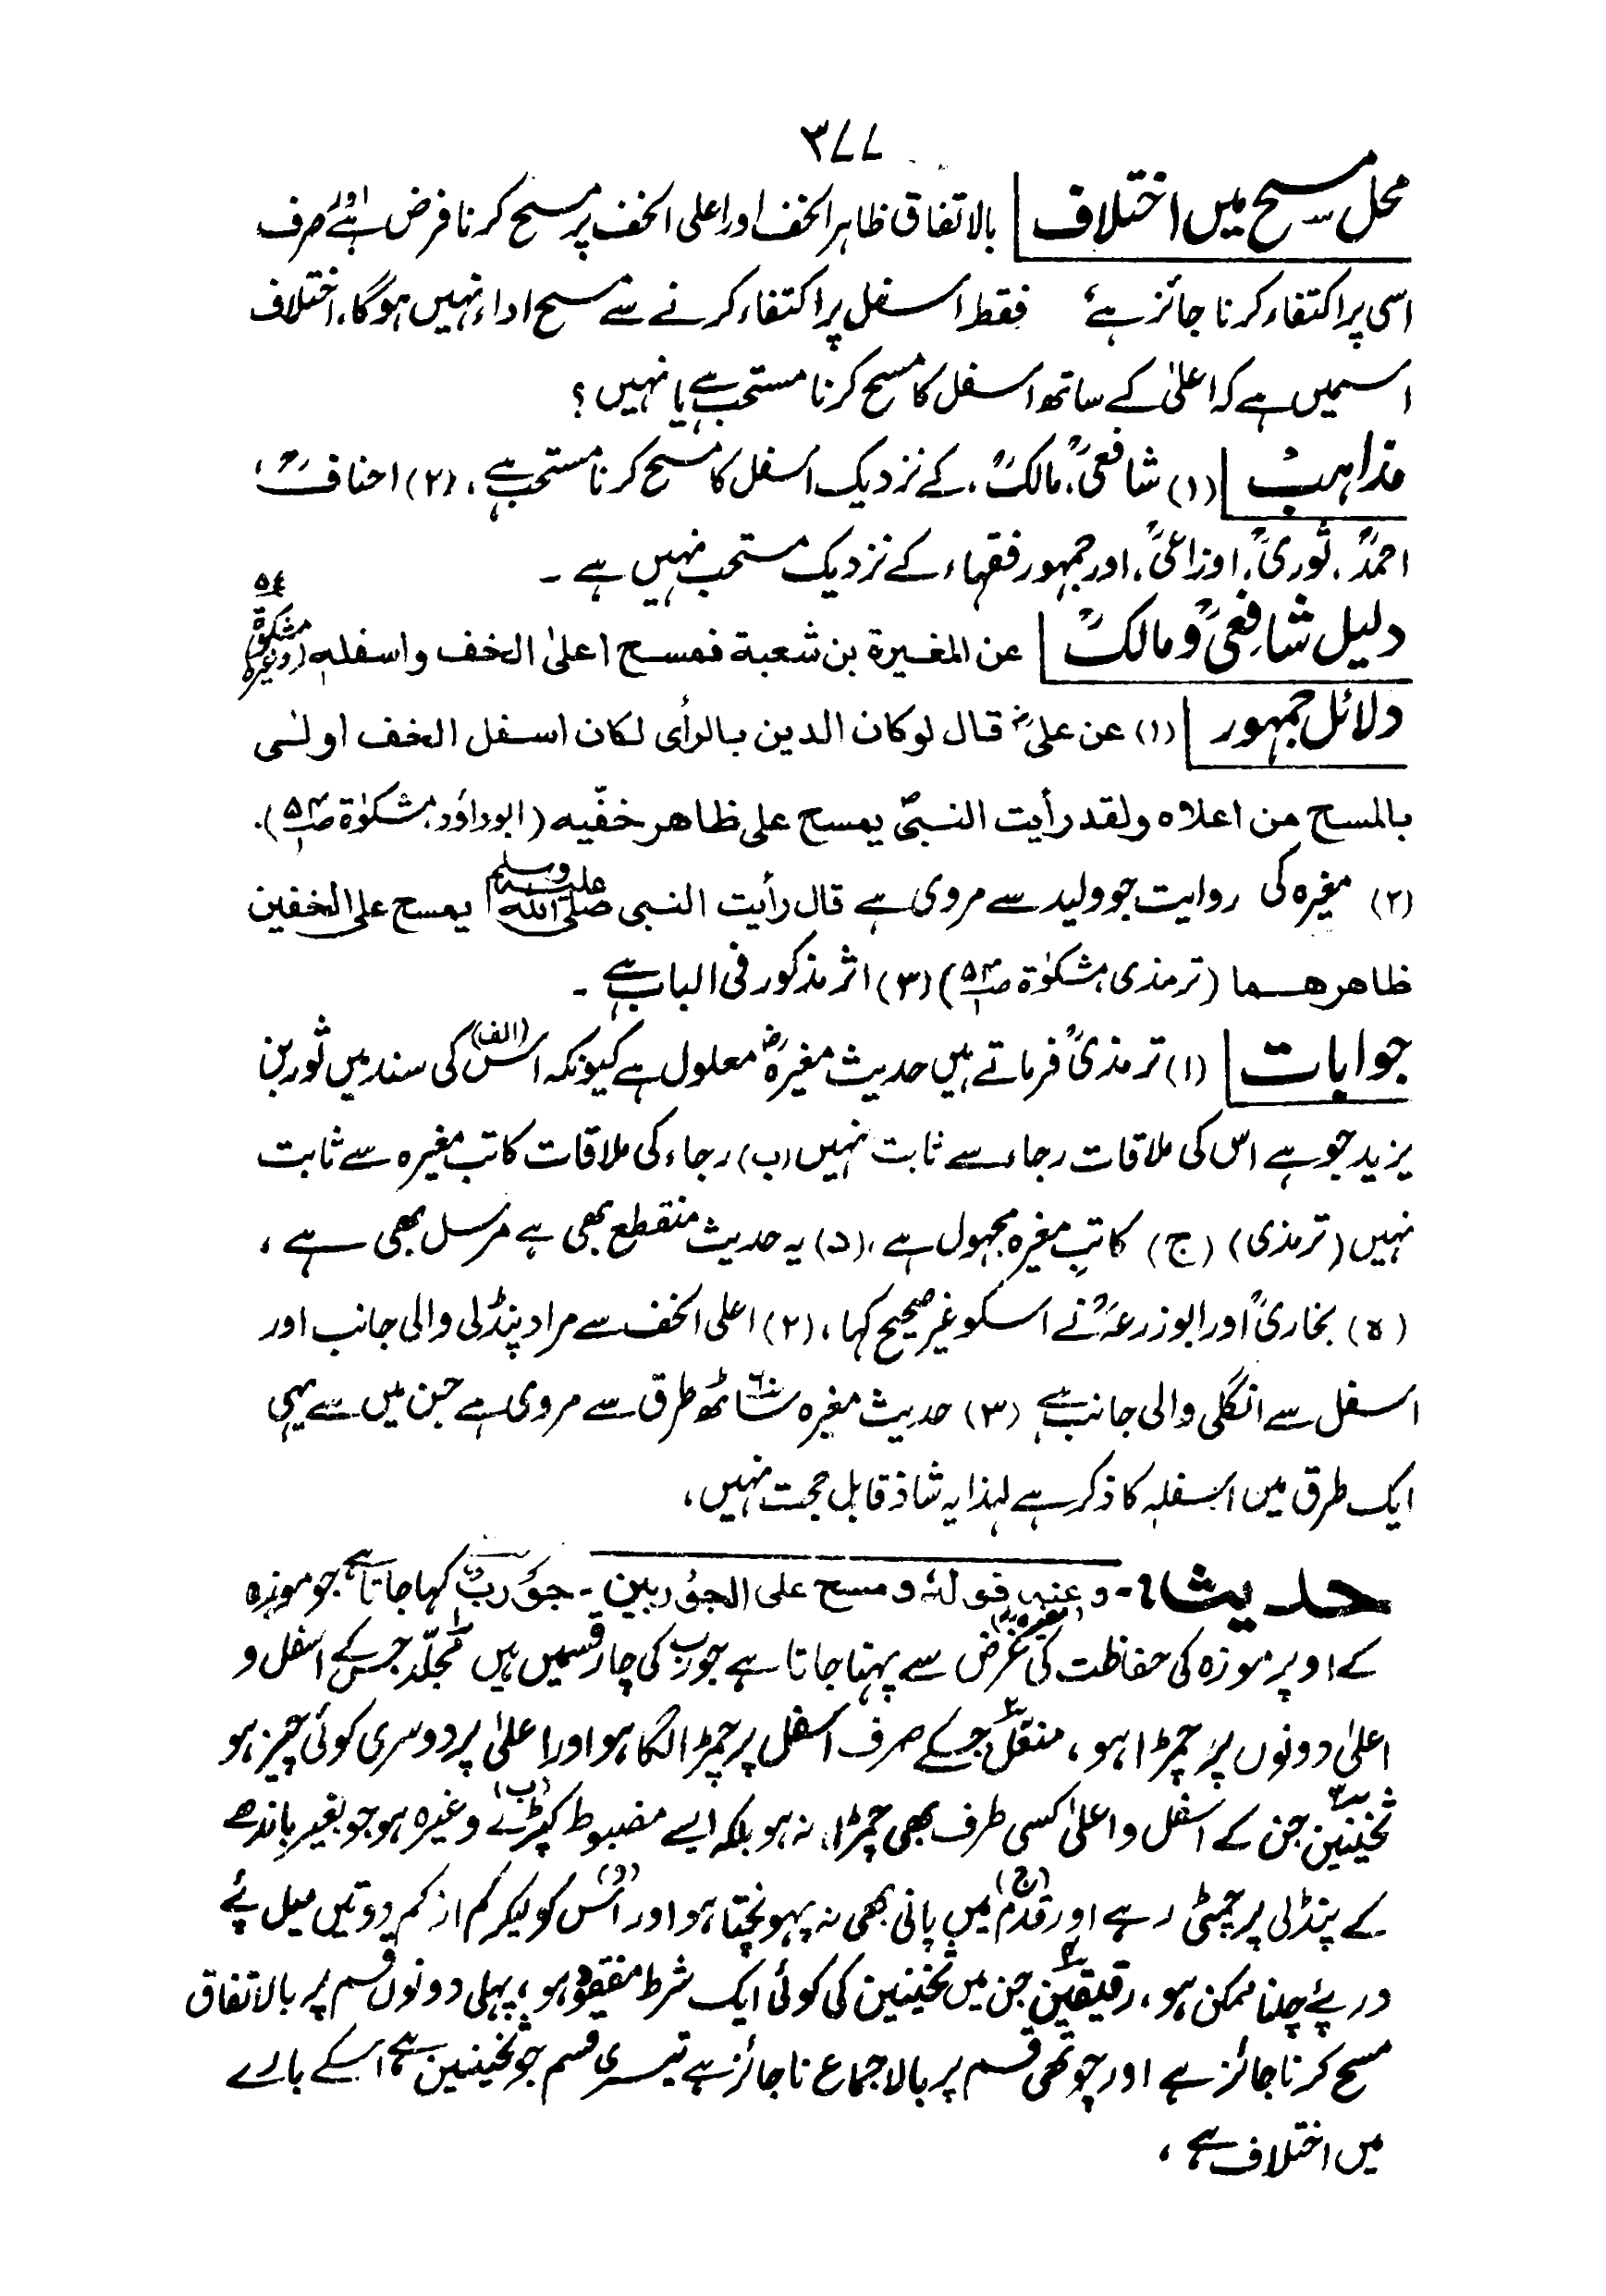 ۳۷۷
محل مسح میں اختلاف بالاتفاق ظاہر الخف اور اعلی الخف پر مسح کرنا فرض ہے اور صرف
اسی پر اکتفاء کرنا جائز ہے فقط اسفل پر اکتفاء کرنے سے مسح اداء نہیں ہوگا، اختلاف
اسمیں ہے کہ اعلیٰ کے ساتھ اسفل کا مسح کرنا مستحب ہے یا نہیں ؟
مذاہب (۱) شافعیؒ، مالکؒ، کے نزدیک اسفل کا مسح کرنا مستحب ہے، (۲) احنافؒ،
احمدؒ، ثوریؒ، اوزاعیؒ، اور جمہور فقہاء کے نزدیک مستحب نہیں ہے ۔
دلیل شافعیؒ و مالکؒ عن المغیرة بن شعبة فمسح اعلیٰ الخف و اسفلہ (مشکوٰۃ ۵٤ وغیرہ)
دلائل جمہور (۱) عن علیؓ قال لو کان الدین بالرأی لکان اسفل الخف اولٰی
بالمسح من اعلاہ ولقد رأیت النبیؐ یمسح علی ظاهر خفّیه (ابوداؤد، مشکوٰۃ ص۵۴).
(۲) مغیرہ کی روایت جو ولید سے مروی ہے قال رأیت النبی صلی اللہ علیہ وسلم یمسح علی الخفین
ظاهرهما (ترمذی، مشکوٰۃ ص۵۴) (۳) اثر مذکور فی الباب ہے ۔
جوابات (۱) ترمذیؒ فرماتے ہیں حدیث مغیرہؓ معلول ہے کیونکہ (الف) اس کی سند میں ثور بن
یزید جو ہے اس کی ملاقات رجاء سے ثابت نہیں (ب) رجاء کی ملاقات کاتب مغیرہ سے ثابت
نہیں (ترمذی) (ج) کاتبِ مغیرہ مجہول ہے، (د) یہ حدیث منقطع بھی ہے مرسل بھی ہے ،
(ہ) بخاریؒ اور ابوزرعہؒ نے اسکو غیر صحیح کہا، (۲) اعلی الخف سے مراد پنڈلی والی جانب اور
اسفل سے انگلی والی جانب ہے (۳) حدیث مغیرہ ساٹھ ٦٠ طرق سے مروی ہے جن میں سے یہی
ایک طرق میں اسفلہ کا ذکر ہے لہذا یہ شاذ قابل حجت نہیں ،
حدیث :- و عنہ (مغیرہؓ) قولہٗ و مسح علی الجوْربین - جوْربؒ کہا جاتا ہے جو موزہ
کے اوپر موزہ کی حفاظت کی غرض سے پہنا جاتا ہے جورب کی چار قسمیں ہیں ۱ مجلّد جس کے اسفل و
اعلیٰ دونوں پر چمڑا ہو ، ۲ منقل جسکے صرف اسفل پر چمڑا لگا ہو اور اعلیٰ پر دوسری کوئی چیز ہو
۳ ثخینین جن کے اسفل و اعلیٰ کسی طرف بھی چمڑا نہ ہو بلکہ ایسے مضبوط کپڑے وغیرہ ہو جو (ب) بغیر باندھے
کے پنڈلی پر چمٹی رہے اور (ج) قدم میں پانی بھی نہ پہونچتا ہو اور (د) اُس کو لیکر کم از کم دو تین میل پئے
در پئے چلنا ممکن ہو ، ۴ رقیقین جن میں ثخینین کی کوئی ایک شرط مفقود ہو ، پہلی دونوں قسم پر بالاتفاق
مسح کرنا جائز ہے اور چوتھی قسم پر بالاجماع ناجائز ہے تیسری قسم جو ثخینین ہے اسکے بارے
میں اختلاف ہے ،